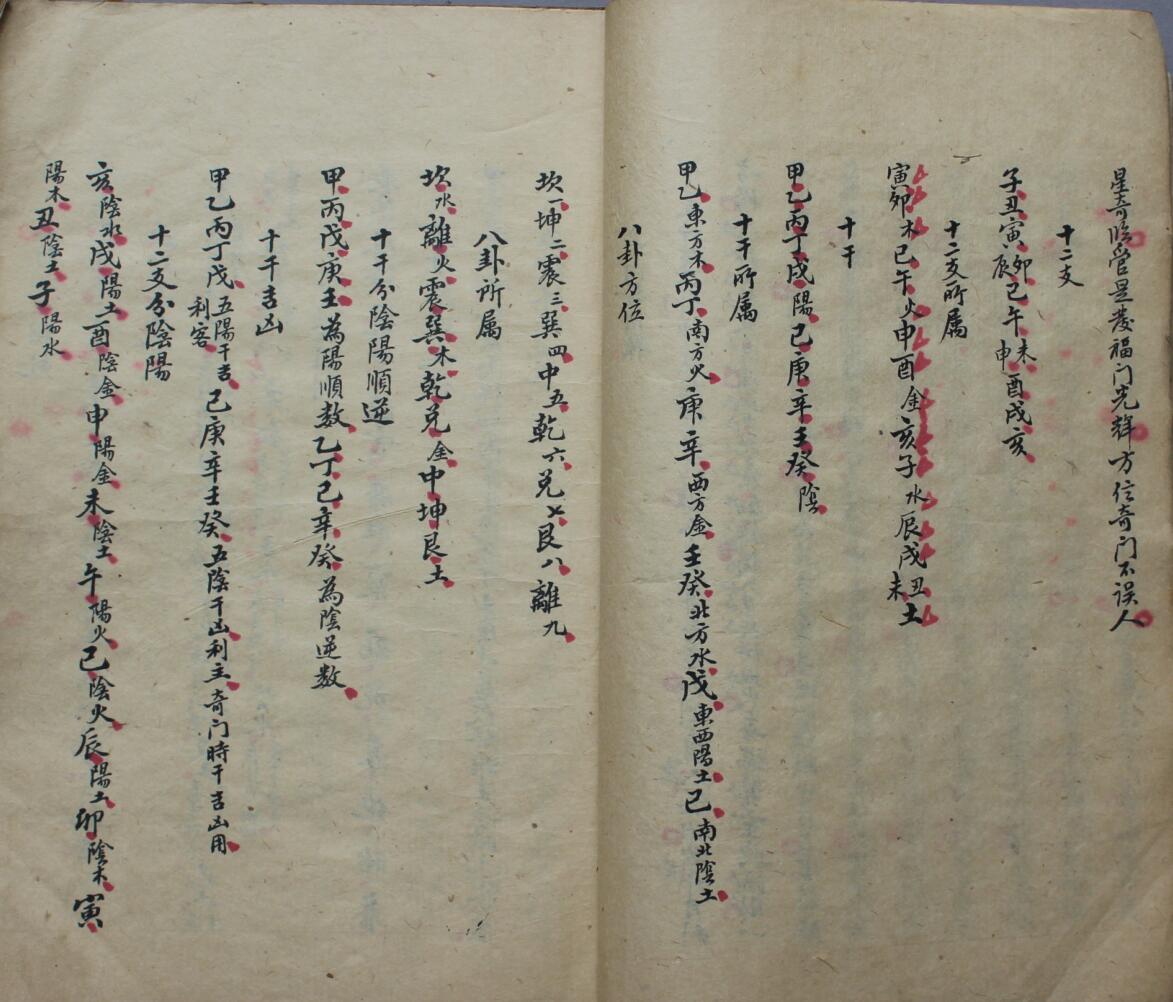 星奇临管是发福门光辉方信奇门不误人
十二支
子丑寅卯辰巳午未申酉戌亥
十二支所属
寅卯木巳午火申酉金亥子水辰戌丑未土
十干
甲乙丙丁戊陽己庚辛壬癸陰
十干所属
甲乙東方木丙丁南方火庚辛西方金壬癸北方水戊東西陽土己南北陰土
八卦方位
坎一坤二震三巽四中五乾六兑七艮八離九
八卦所属
坎水離火震巽木乾兑金中坤艮土
十干分陰陽順逆
甲丙戊庚壬為陽順数乙丁己辛癸為陰逆数
十干吉凶
甲乙丙丁戊五陽干吉利客己庚辛壬癸五陰干凶利主奇门時干吉凶用
十二支分陰陽
亥陰水戌陽土酉陰金申陽金未陰土午陽火巳陰火辰陽土卯陰木寅
陽木丑陰土子陽水